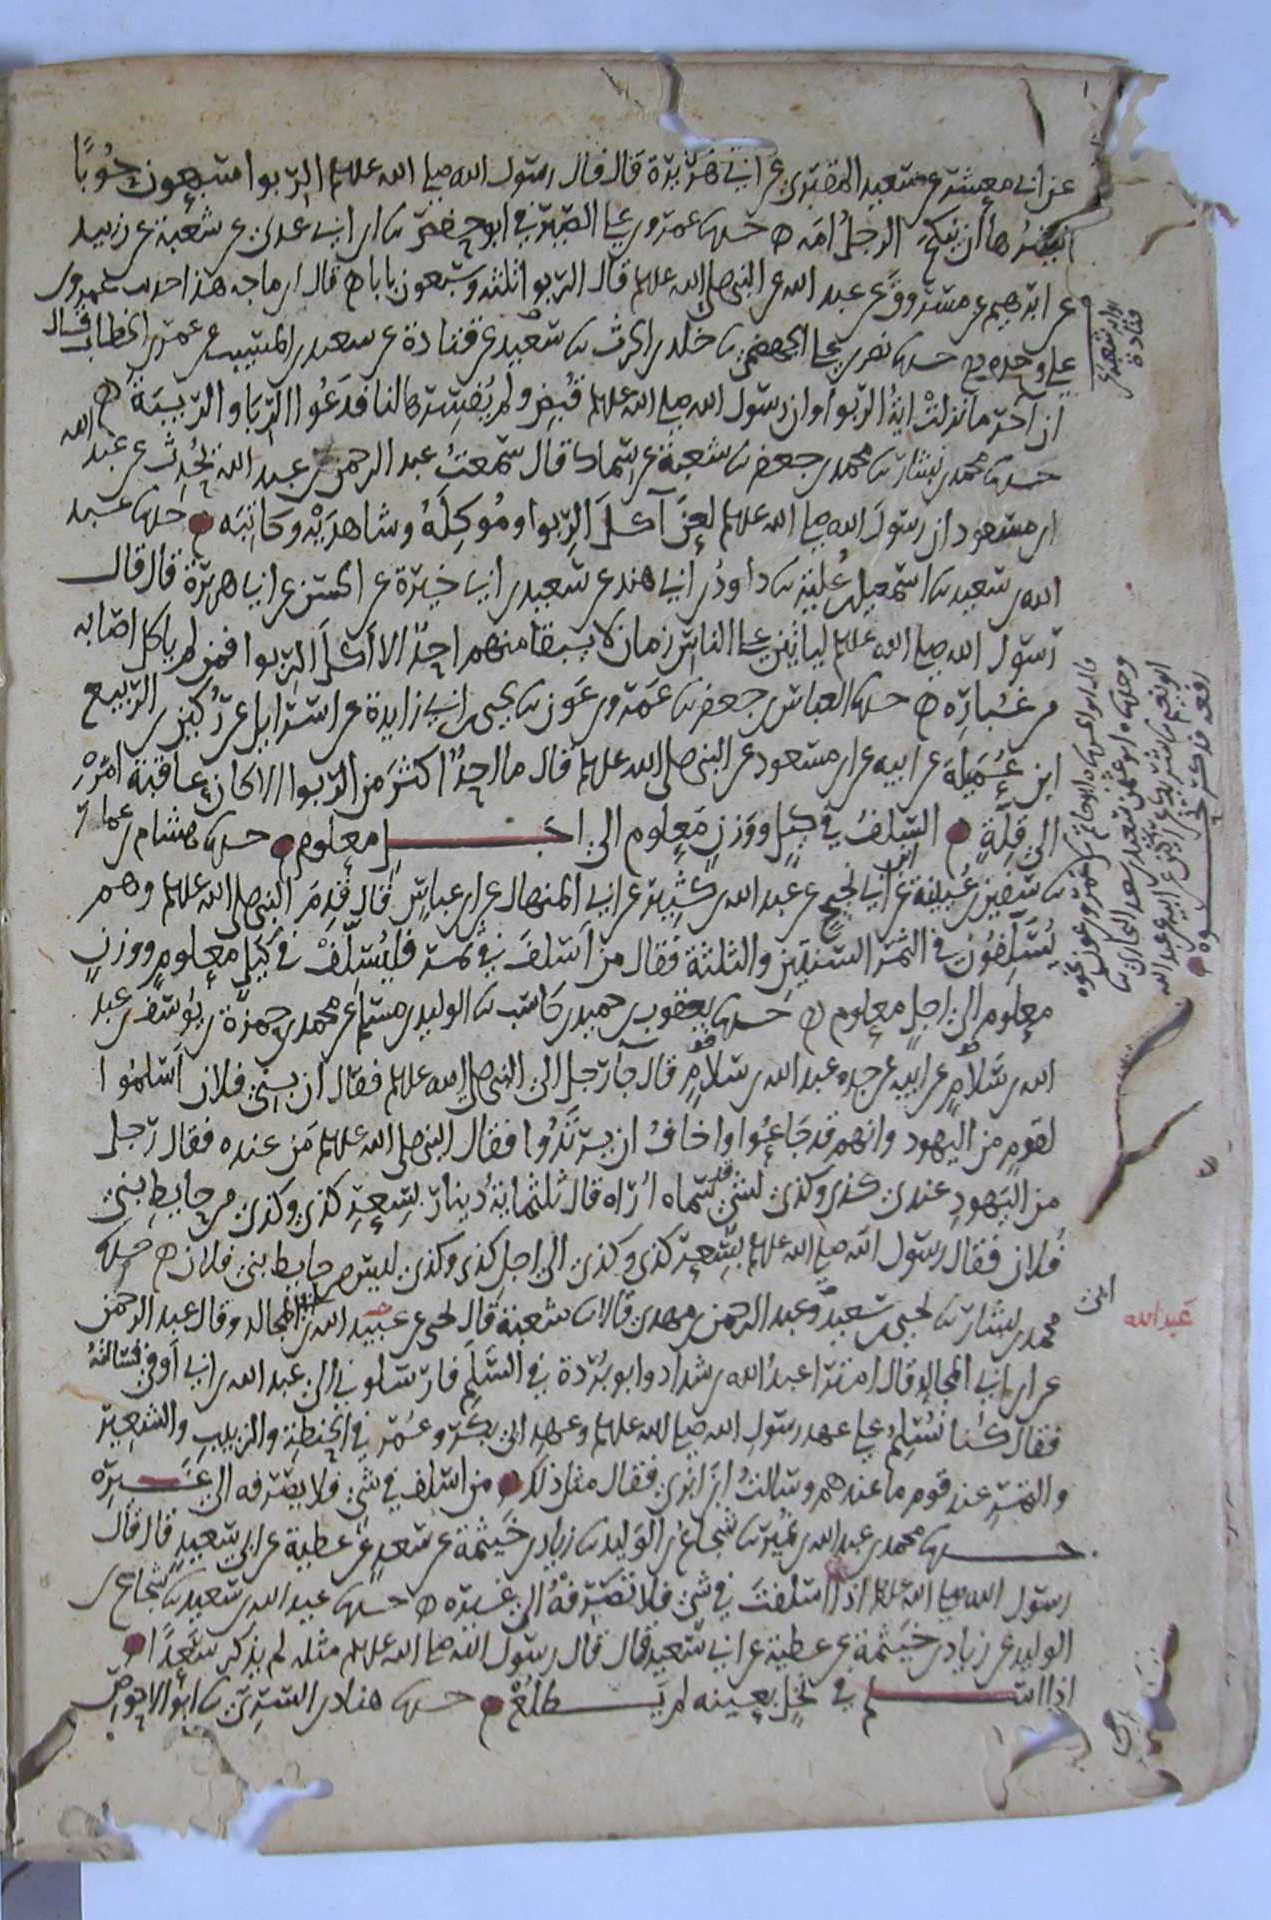 عن ابي معشر عن سعيد المقبري عن ابي هريرة قال قال رسول الله صلى الله عليه وسلم الربوا سبعون حوبا
ايسرها ان ينكح الرجل امه حدثنا عمرو بن علي الصيرفي ابو حفص ثنا ابن ابي عدي عن شعبة عن زبيد
عن ابرهيم عن مسروق عن عبد الله عن النبي صلى الله عليه وسلم قال الربوا ثلثة وسبعون بابا قال ابن ماجه هذا حدث عمرو بن
علي وحده حدثنا نصر بن علي الجهضمي ثنا خلد بن الحرث ثنا سعيد عن قتادة عن سعيد بن المسيب عن عمر بن الخطاب قال
ان آخر ما نزلت اية الربوا وان رسول الله صلى الله عليه وسلم قبض ولم يفسرها لنا فدعوا الربا والريبة
حدثنا محمد بن بشار ثنا محمد بن جعفر ثنا شعبة عن سماك قال سمعت عبد الرحمن بن عبد الله يحدث عن عبد الله
ابن مسعود ان رسول الله صلى الله عليه وسلم لعن آكل الربوا وموكله وشاهديه وكاتبه حدثنا عبد
الله بن سعيد ثنا اسمعيل بن علية ثنا داود بن ابي هند عن سعيد بن ابي خيرة عن الحسن عن ابي هريرة قال قال
رسول الله صلى الله عليه وسلم لياتين على الناس زمان لا يبقا منهم احد الا اكل الربوا فمن لم ياكل اصابه
من غباره حدثنا العباس بن جعفر ثنا عمرو بن عون ثنا يحيى بن ابي زايدة عن اسرايل عن ركين بن الربيع
ابن عميلة عن ابيه عن ابن مسعود عن النبي صلى الله عليه وسلم قال ما احد اكثر من الربوا الا كان عاقبة امره
الى قلة السلف في كيل ووزن معلوم الى اجل معلوم حدثنا هشام بن عمار
ثنا سفين بن عيينة عن ابن ابي نجيح عن عبد الله بن كثير عن ابي المنهال عن ابن عباس قال قدم النبي صلى الله عليه وسلم وهم
يسلفون في التمر السنتين والثلثة فقال من اسلف في تمر فليسلف في كيل معلوم ووزن
معلوم الى اجل معلوم حدثنا يعقوب بن حميد بن كاسب ثنا الوليد بن مسلم عن محمد بن حمزة بن يوسف بن عبد
الله بن سلام عن ابيه عن جده عبد الله بن سلام قال جآ رجل الى النبي صلى الله عليه وسلم فقال ان بني فلان اسلموا
لقوم من اليهود وانهم قد جاعوا واخاف ان يرتدوا فقال النبي صلى الله عليه وسلم من عنده فقال رجل
من اليهود عندي كذى وكذى لشئ قد سماه اراه قال ثلثماية دينار بسعر كذى وكذى من حايط بني
فلان فقال رسول الله صلى الله عليه وسلم بسعر كذى وكذى الى اجل كذى وكذى ليس من حايط بني فلان حدثنا
محمد بن بشار ثنا يحيى بن سعيد وعبد الرحمن بن مهدي قالا ثنا شعبة قال يحيى عن عبيد الله بن ابي المجالد وقال عبد الرحمن
عن ابن ابي المجالد قال امترا عبد الله بن شداد وابو بردة في السلم فارسلوني الى عبد الله بن ابي اوفى فسالته
فقال كنا نسلم على عهد رسول الله صلى الله عليه وسلم وعهد ابي بكر وعمر في الحنطة والزبيب والشعير
والتمر عند قوم ما عندهم وسالت ابن ابزى فقال مثل ذلك من اسلف في شئ فلا يصرفه الى غيره
حدثنا محمد بن عبد الله بن نمير ثنا شجاع بن الوليد ثنا زياد بن خيثمة عن سعد عن عطية عن ابي سعيد قال قال
رسول الله صلى الله عليه وسلم اذا اسلفت في شئ فلا تصرفه الى غيره حدثنا عبد الله بن سعيد ثنا شجاع بن
الوليد عن زياد بن خيثمة عن عطية عن ابي سعيد قال قال رسول الله صلى الله عليه وسلم مثله لم يذكر سعدا
اذا اسلم في نخل بعينه لم يطلع حدثنا هناد بن السري ثنا ابو الاحوص
عبد الله